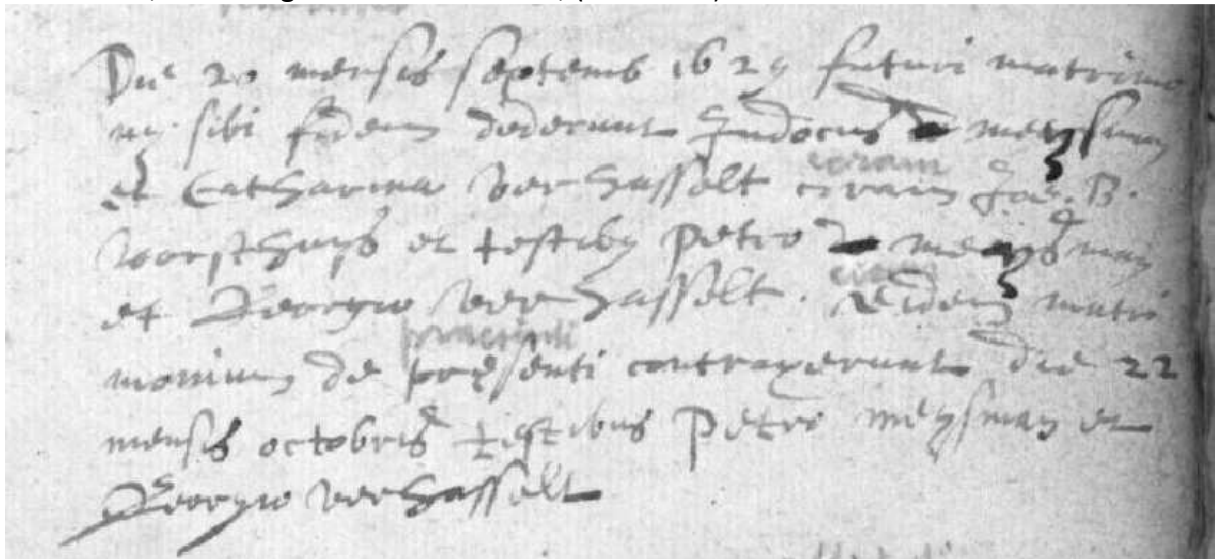 Die 20 mensis septemb 1629 futuri matrimo
nij sibi fidem dederunt Judocus meysman
et Catharina verhasselt coram Jac. B.
vorsthuys et testibus petro meysman
et Georgio verhasselt. Eidem matri
monium de presenti contraxerunt die 22
mensis octobris testibus Petro meysman et
Georgio verhasselt